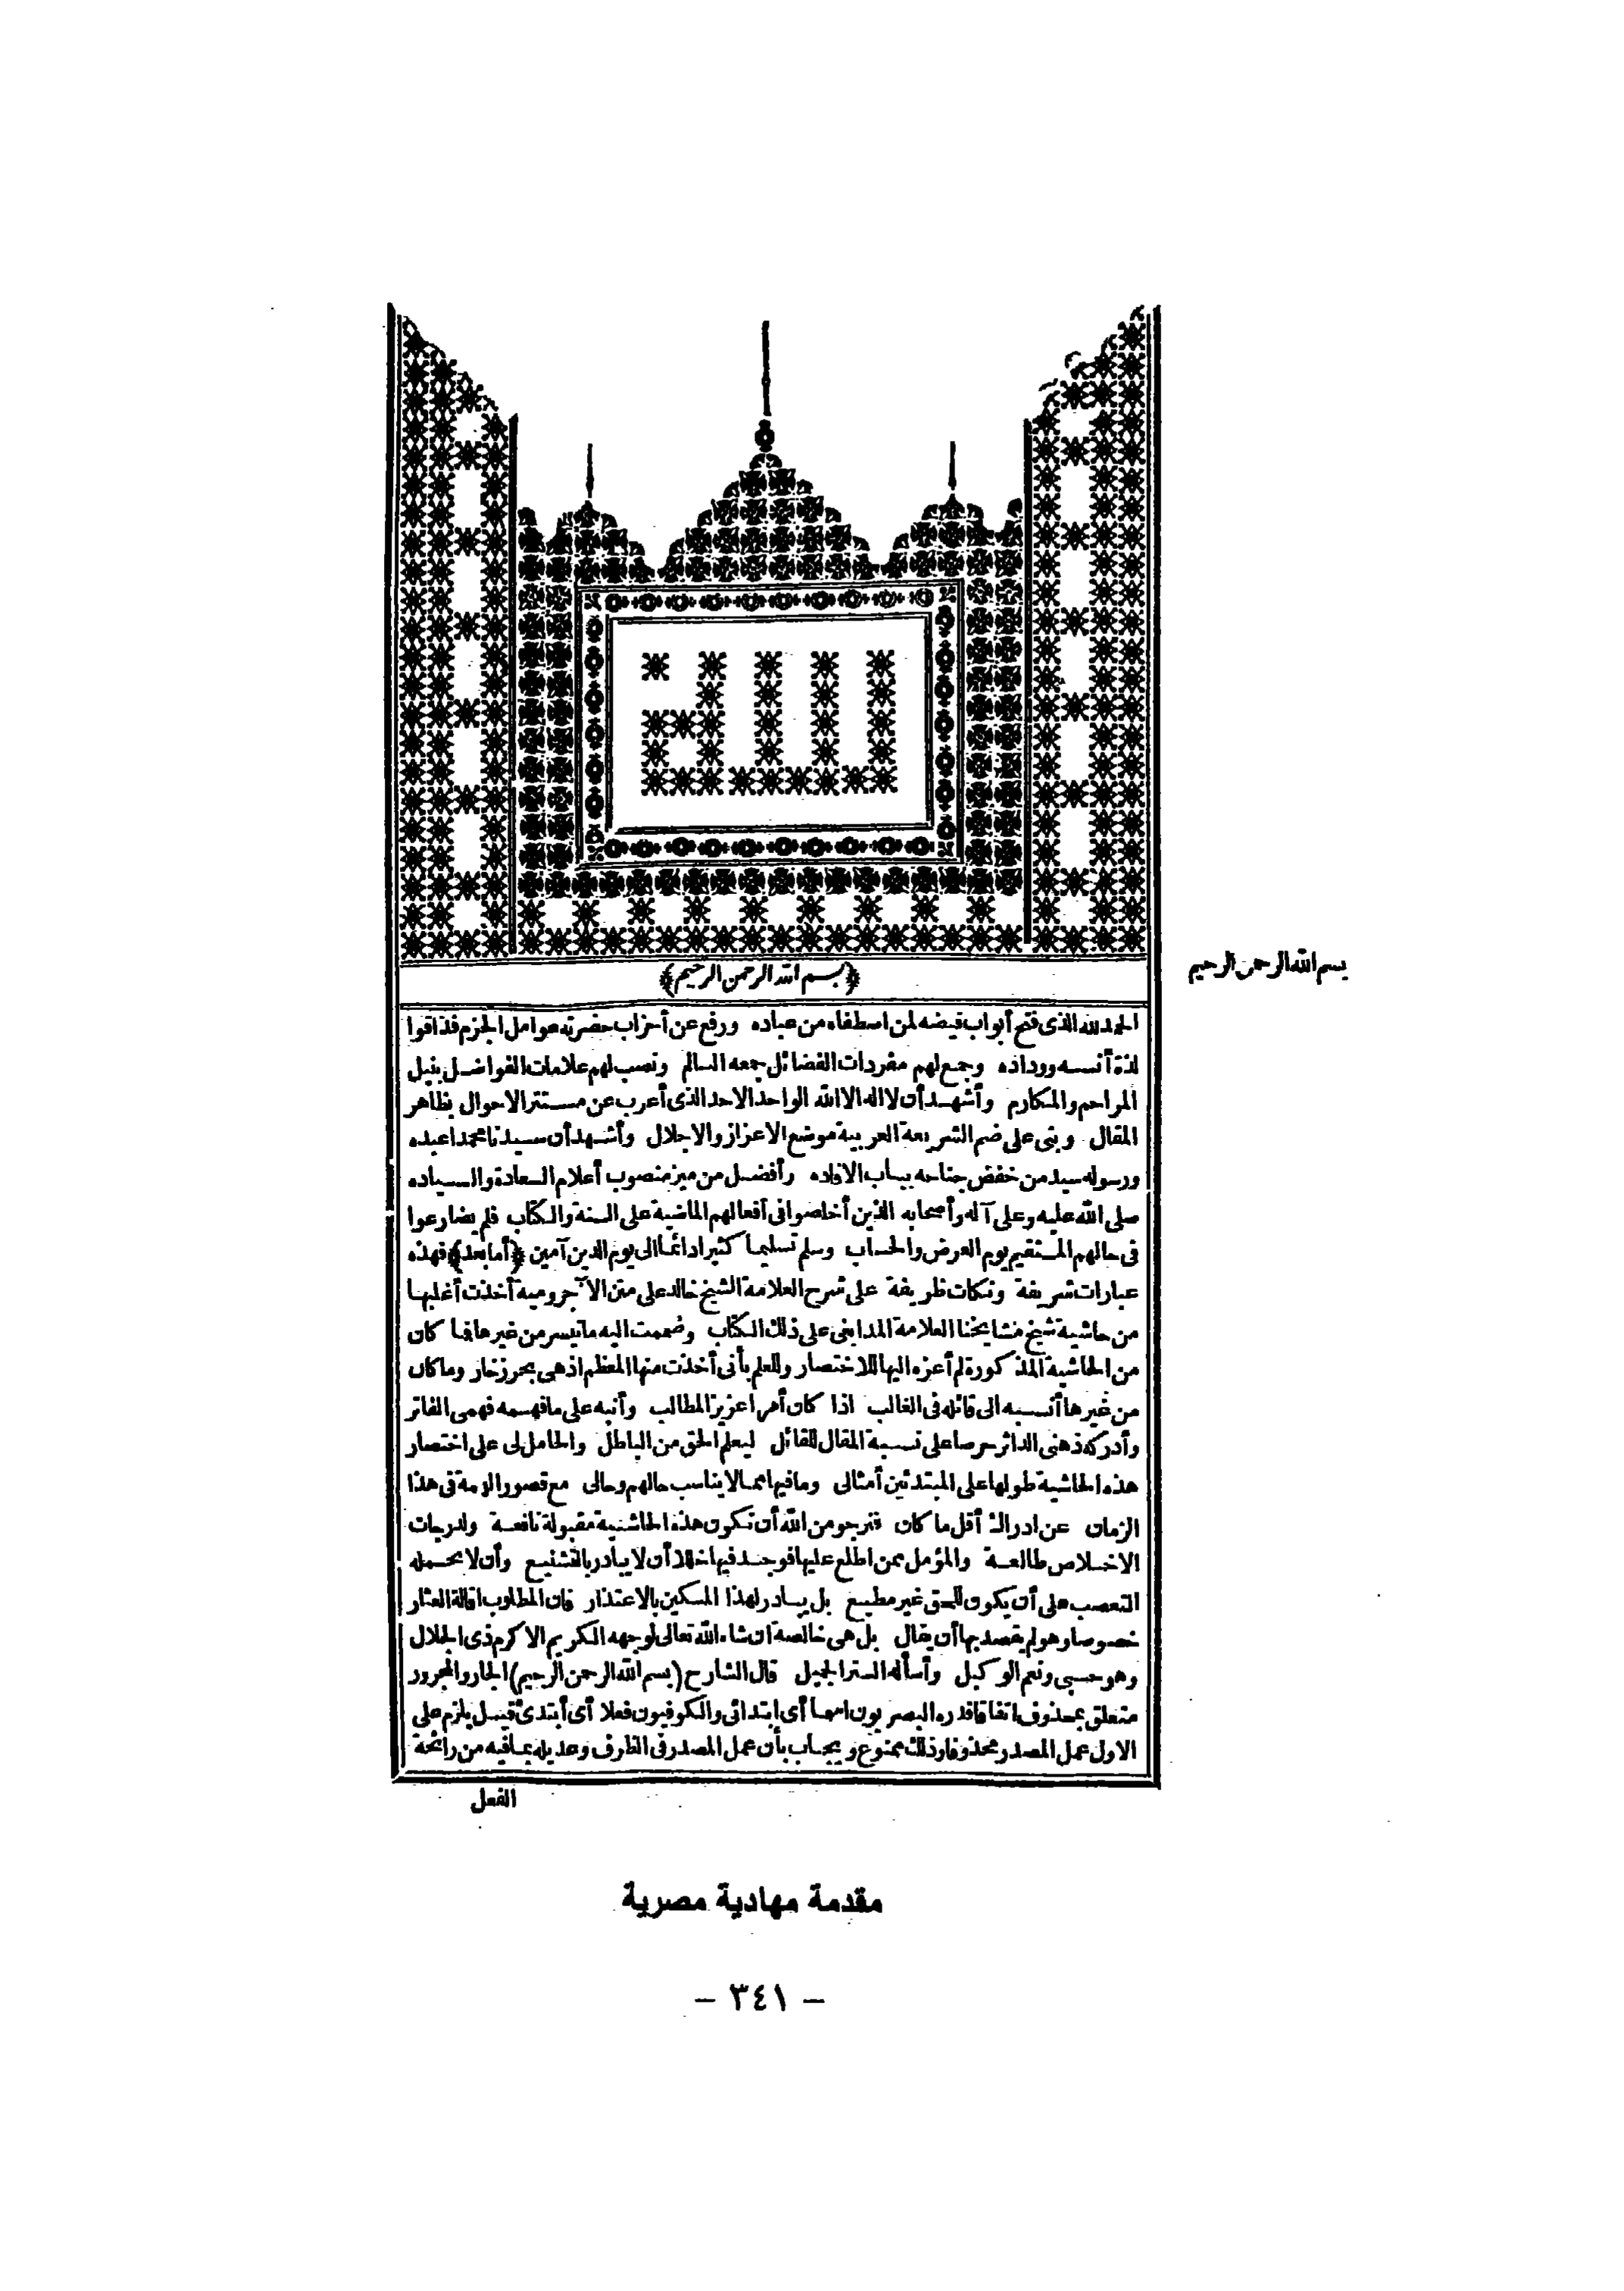 الله
﴿بسم الله الرحمن الرحيم﴾
بسم الله الرحمن الرحيم
الحمد لله الذى فتح أبواب فيضه لمن اصطفاه من عباده ورفع عن أحزاب حضرته عوامل الجزم فذاقوا
لذة أنسه ووداده وجمع لهم مفردات الفضائل جمعه السالم ونصب لهم علامات الفواضل بنيل
المراحم والمكارم وأشهد أن لا اله الا الله الواحد الاحد الذى أعرب عن مستتر الاحوال بظاهر
المقال وبنى على ضم الشريعة العربية موضع الاعزاز والاجلال وأشهد أن سيدنا محمدا عبده
ورسوله سيد من خفض جناحه بباب الافاده وأفضل من ميز منصوب أعلام السعادة والسياده
صلى الله عليه وعلى آله وأصحابه الذين أخلصوا فى أفعالهم الماضية على السنة والكتاب فلم يضارعوا
فى حالهم المستقيم يوم العرض والحساب وسلم تسليما كثيرا دائما الى يوم الدين آمين ﴿أما بعد﴾ فهذه
عبارات شريفة ونكات ظريفة على شرح العلامة الشيخ خالد على متن الآجرومية أخذت أغلبها
من حاشية شيخ مشايخنا العلامة المدابغى على ذلك الكتاب وضممت اليه ما تيسر من غيرها فما كان
من الحاشية المذكورة لم أعزه اليها للاختصار وللعلم بأنى أخذت منها المعظم اذ هى بحر زخار وما كان
من غيرها أنسبه الى قائله فى الغالب اذا كان أمرا عزيز المطالب وأنبه على ما فهمه فهمى الفاتر
وأدركه ذهنى الداثر حرصا على نسبة المقال للقائل ليعلم الحق من الباطل والحامل لى على اختصار
هذه الحاشية طولها على المبتدئين أمثالى وما فيها مما لا يناسب حالهم وحالى مع قصور الهمة فى هذا
الزمان عن ادراك أقل ما كان فنرجو من الله أن تكون هذه الحاشية مقبولة نافعة ولدرجات
الاخلاص طالعة والمؤمل ممن اطلع عليها فوجد فيها خللا أن لا يبادر بالتشنيع وأن لا يحمله
التعصب على أن يكون للحق غير مطيع بل يبادر لهذا المسكين بالاعتذار فان المطلوب اقالة العثار
خصوصا وهو لم يقصد بها أن يقال بل هى خالصة ان شاء الله تعالى لوجهه الكريم الاكرم ذى الجلال
وهو حسبى ونعم الوكيل وأسأله الستر الجميل قال الشارح (بسم الله الرحمن الرحيم) الجار والمجرور
متعلق بمحذوف اتفاقا قدره البصريون اسما أى ابتدائى والكوفيون فعلا أى أبتدئ قيل يلزم على
الاول عمل المصدر محذوفا وذلك ممنوع ويجاب بأن عمل المصدر فى الظرف وعديله بما فيه من رائحة
الفعل
مقدمة مهادية مصرية
– ٣٤١ –